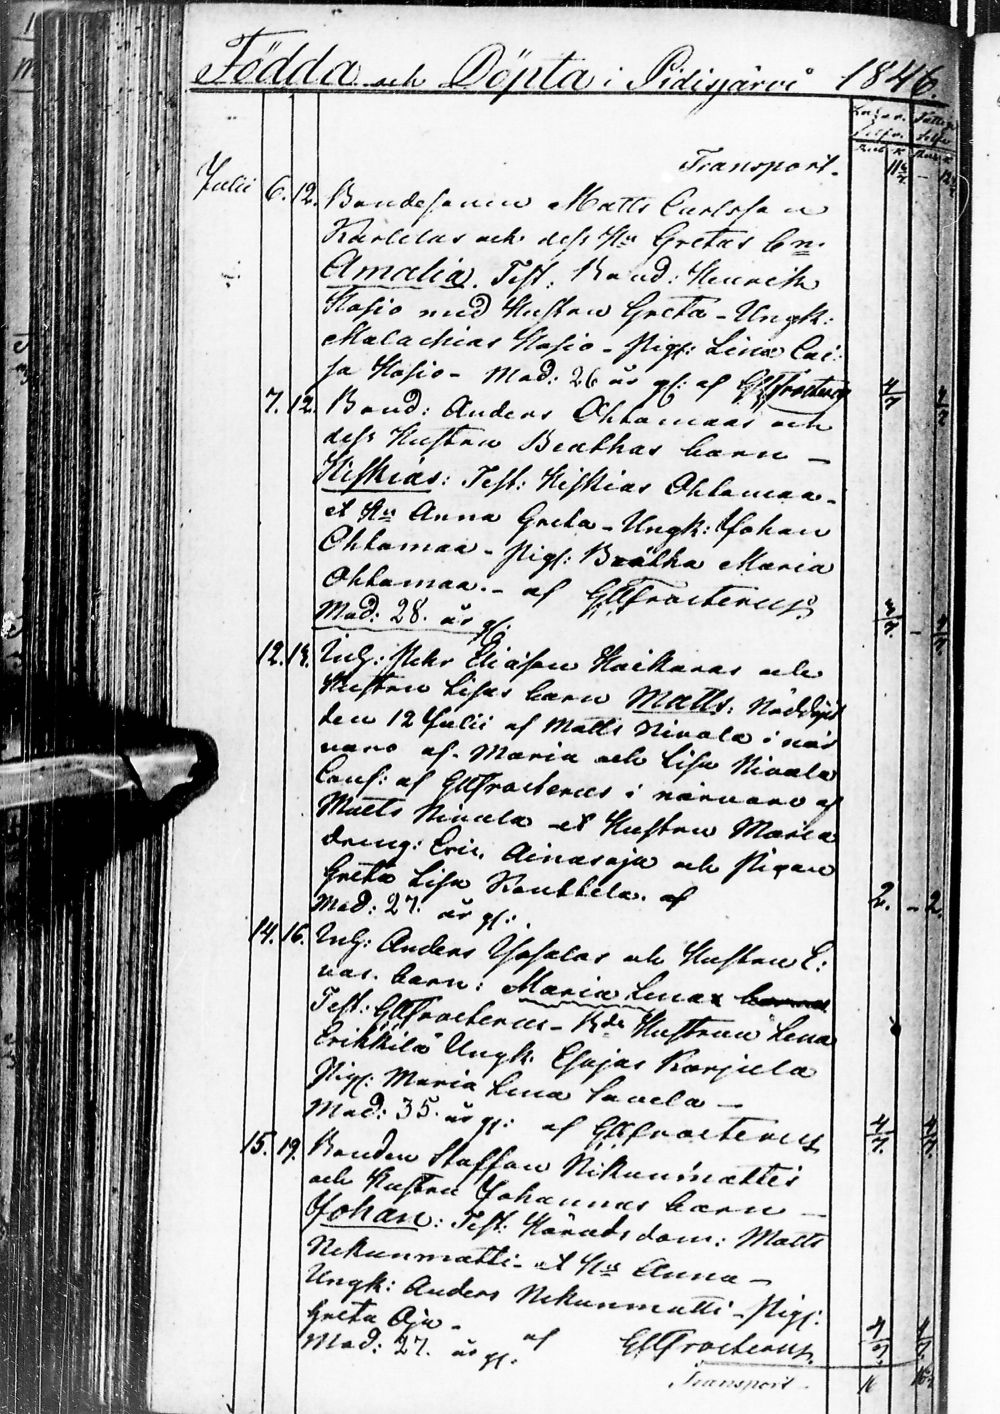 Födda och Döpta i Pidisjärvi 1846.
Transport.
Julii 6. 12. Bondesonen Matts Carlsson
Karlelas och dess Hu Gretas bn.
Amalia. Test: Bond: Henrik
Hosio med Hustru Greta - Ungk:
Malachias Hosio - Pig: Lina Cai-
sa Hosio - Mod: 26 år gl: af GHFrosterus
7. 12. Bond: Anders Ohtamaas och
dess Hustru Beathas barn -
Hiskias: Test: Hiskias Ohtamaa -
et Hu Anna Greta - Ungk: Johan
Ohtamaa - Pig: Beatha Maria
Ohtamaa. - af GHFrosterus
Mod: 28. år gl:
12. 14. Inh: Pehr Eliasson Haikaras och
Hustru Lisas barn Matts: Nöddöpt
den 12 Julii af Matts Nivala i när
varo af Maria och Lisa Nivala
Conf: af GHFrosterus i närvaro af
Matts Nivala et Hustru Maria
dreng: Eric Ainasoja och Pigan
Greta Lisa Konttila. af
Mod: 27. år gl:
2. - 2.
14. 16. Inh: Anders Ypsalas och Hustru E:
vas. barn: Maria Lena
Test: GHFrosterus - Bde Hustrun Lena
Erikkilä Ungk. Esajas Karjula
Pig: Maria Lena Savela -
Mod: 35. år gl: af GHFrosterus
15. 19. Bonden Staffan Nikunmattis
och Hustru Johannas barn -
Johan: Test: Häradsdom: Matts
Nikunmatti - et Hu Anna -
Ungk: Anders Nikunmatti - Pig:
Greta Oja -
Mod: 27. år gl. af GHFrosterus
Transport. 16